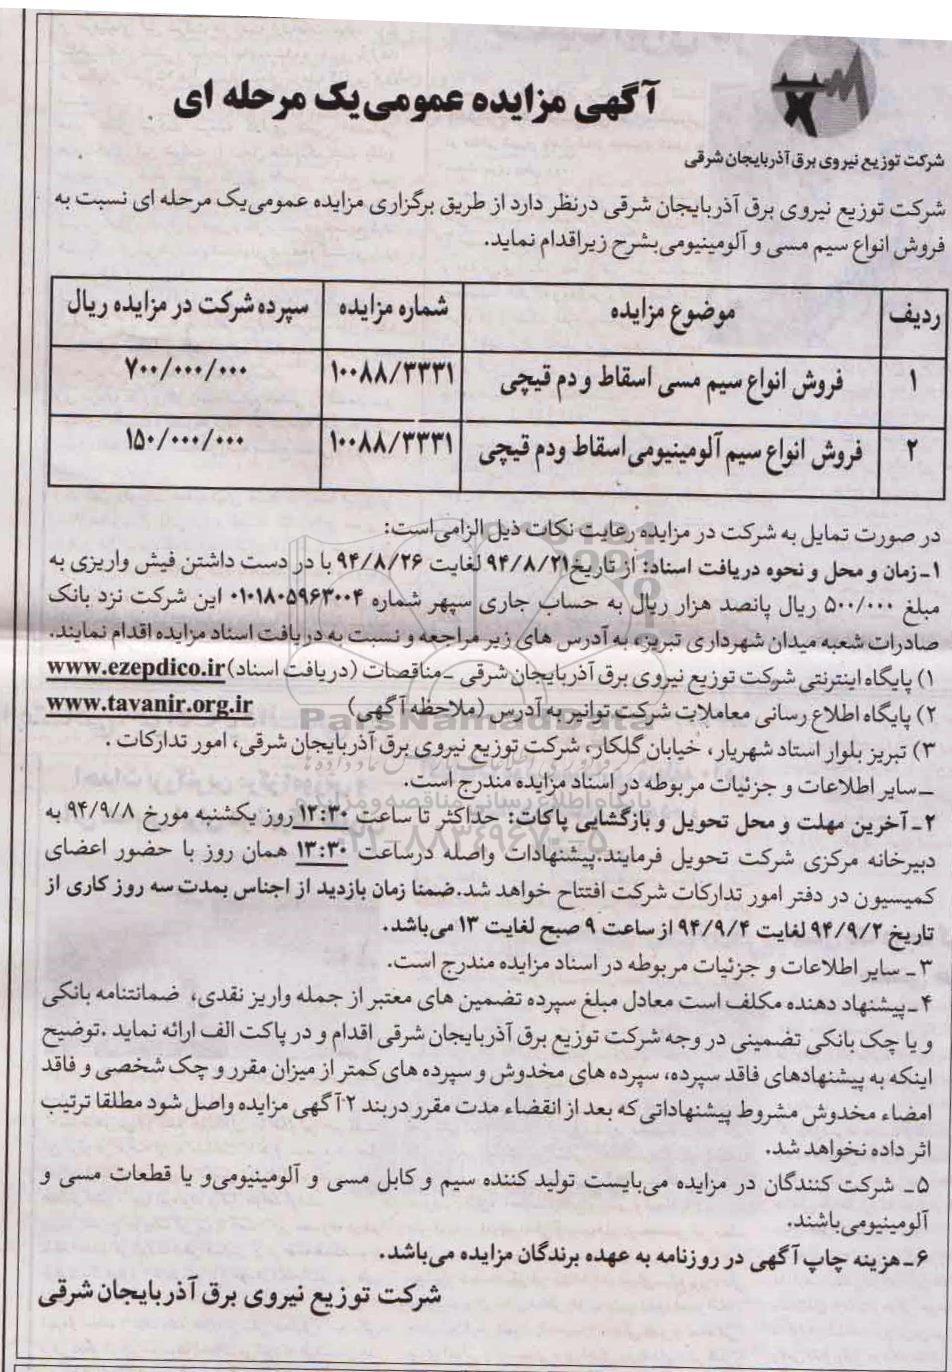 آگهی مزایده عمومی‌یک مرحله ای
شرکت توزیع نیروی برق آذربایجان شرقی
شرکت توزیع نیروی برق آذربایجان شرقی درنظر دارد از طریق برگزاری مزایده عمومی‌یک مرحله ای نسبت به
فروش انواع سیم مسی و آلومینیومی‌بشرح زیراقدام نماید.
ردیف موضوع مزایده شماره مزایده سپرده شرکت در مزایده ریال
۱ فروش انواع سیم مسی اسقاط و دم قیچی ۱۰۰۸۸/۳۳۳۱ ۷۰۰/۰۰۰/۰۰۰
۲ فروش انواع سیم آلومینیومی‌اسقاط ودم قیچی ۱۰۰۸۸/۳۳۳۱ ۱۵۰/۰۰۰/۰۰۰
در صورت تمایل به شرکت در مزایده رعایت نکات ذیل الزامی‌است:
۱ـ زمان و محل و نحوه دریافت اسناد: از تاریخ۹۴/۸/۲۱ لغایت ۹۴/۸/۲۶ با در دست داشتن فیش واریزی به
مبلغ ۵۰۰/۰۰۰ ریال پانصد هزار ریال به حساب جاری سپهر شماره ۰۱۰۱۸۰۵۹۶۳۰۰۴ این شرکت نزد بانک
صادرات شعبه میدان شهرداری تبریز، به آدرس های زیر مراجعه و نسبت به دریافت اسناد مزایده اقدام نمایند.
۱) پایگاه اینترنتی شرکت توزیع نیروی برق آذربایجان شرقی ـ مناقصات (دریافت اسناد) www.ezepdico.ir
۲) پایگاه اطلاع رسانی معاملات شرکت توانیر به آدرس (ملاحظه آگهی) www.tavanir.org.ir
ParsNamadData
۳) تبریز بلوار استاد شهریار، خیابان گلکار، شرکت توزیع نیروی برق آذربایجان شرقی، امور تدارکات .
ـ سایر اطلاعات و جزئیات مربوطه در اسناد مزایده مندرج است.
پایگاه اطلاع رسانی مناقصه و مزایده
۲ـ آخرین مهلت و محل تحویل و بازگشایی پاکات: حداکثر تا ساعت ۱۲:۳۰ روز یکشنبه مورخ ۹۴/۹/۸ به
دبیرخانه مرکزی شرکت تحویل فرمایند.پیشنهادات واصله درساعت ۱۳:۳۰ همان روز با حضور اعضای
کمیسیون در دفتر امور تدارکات شرکت افتتاح خواهد شد.ضمنا زمان بازدید از اجناس بمدت سه روز کاری از
تاریخ ۹۴/۹/۲ لغایت ۹۴/۹/۴ از ساعت ۹ صبح لغایت ۱۳ می‌باشد.
۳ـ سایر اطلاعات و جزئیات مربوطه در اسناد مزایده مندرج است.
۴ـ پیشنهاد دهنده مکلف است معادل مبلغ سپرده تضمین های معتبر از جمله واریز نقدی، ضمانتنامه بانکی
و یا چک بانکی تضمینی در وجه شرکت توزیع برق آذربایجان شرقی اقدام و در پاکت الف ارائه نماید .توضیح
اینکه به پیشنهادهای فاقد سپرده، سپرده های مخدوش و سپرده های کمتر از میزان مقرر و چک شخصی و فاقد
امضاء مخدوش مشروط پیشنهاداتی که بعد از انقضاء مدت مقرر دربند ۲آگهی مزایده واصل شود مطلقا ترتیب
اثر داده نخواهد شد.
۵ـ شرکت کنندگان در مزایده می‌بایست تولید کننده سیم و کابل مسی و آلومینیومی‌و یا قطعات مسی و
آلومینیومی‌باشند.
۶ـ هزینه چاپ آگهی در روزنامه به عهده برندگان مزایده می‌باشد.
شرکت توزیع نیروی برق آذربایجان شرقی